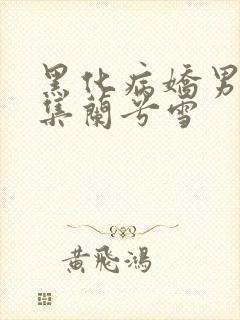 黑化病嬌男
集蘭兮雪
黃飛鴻